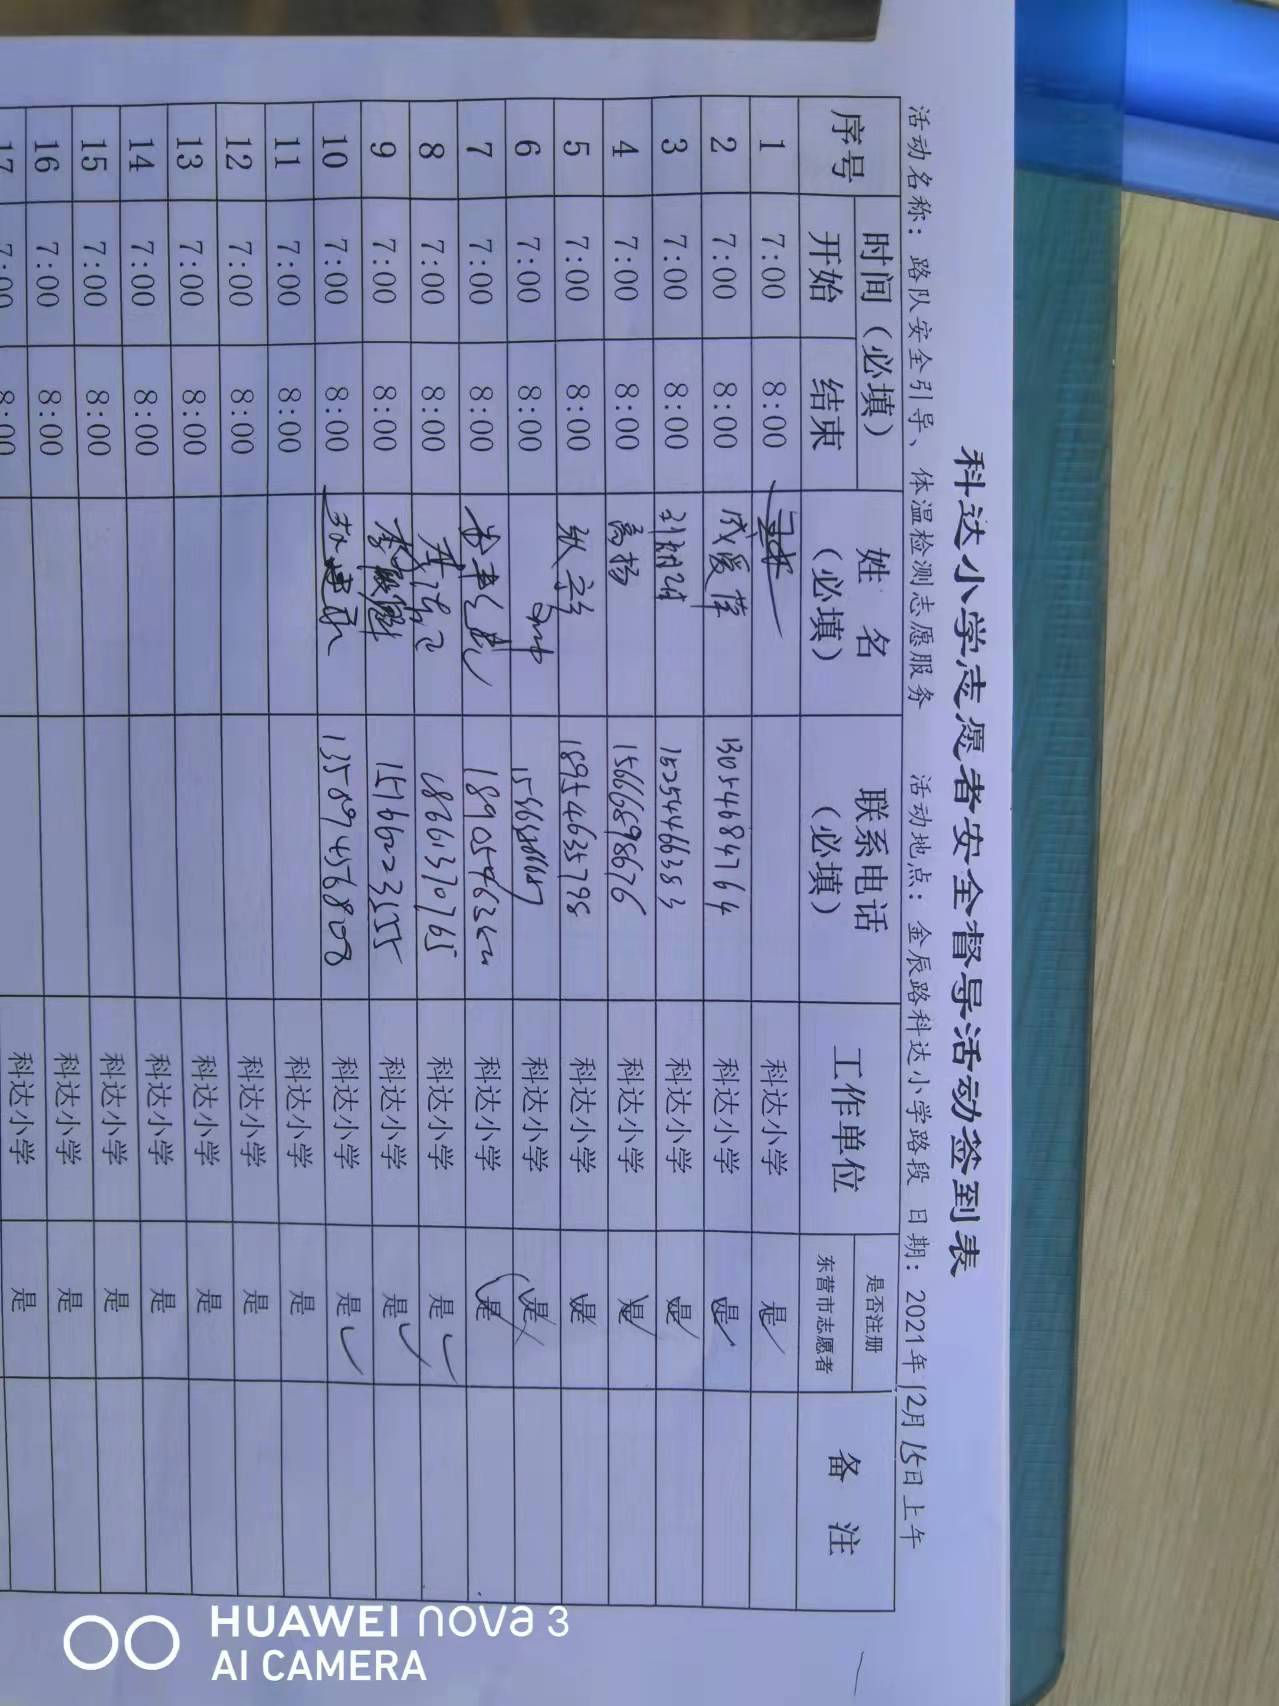 科达小学志愿者安全督导活动签到表
活动名称：路队安全引导、体温检测志愿服务 活动地点：金辰路科达小学路段 日期：2021年12月15日上午
序号 时间（必填） 姓名（必填） 联系电话（必填） 工作单位 是否注册东营市志愿者 备注
开始 结束
1 7:00 8:00 科达小学 是
2 7:00 8:00 成爱萍 13054684764 科达小学 是
3 7:00 8:00 15254466383 科达小学 是
4 7:00 8:00 高扬 15666898676 科达小学 是
5 7:00 8:00 18954635798 科达小学 是
6 7:00 8:00 科达小学 是
7 7:00 8:00 科达小学 是
8 7:00 8:00 18661370765 科达小学 是
9 7:00 8:00 科达小学 是
10 7:00 8:00 科达小学 是
11 7:00 8:00 科达小学 是
12 7:00 8:00 科达小学 是
13 7:00 8:00 科达小学 是
14 7:00 8:00 科达小学 是
15 7:00 8:00 科达小学 是
16 7:00 8:00 科达小学 是
17 7:00 8:00 科达小学 是
HUAWEI nova 3
AI CAMERA